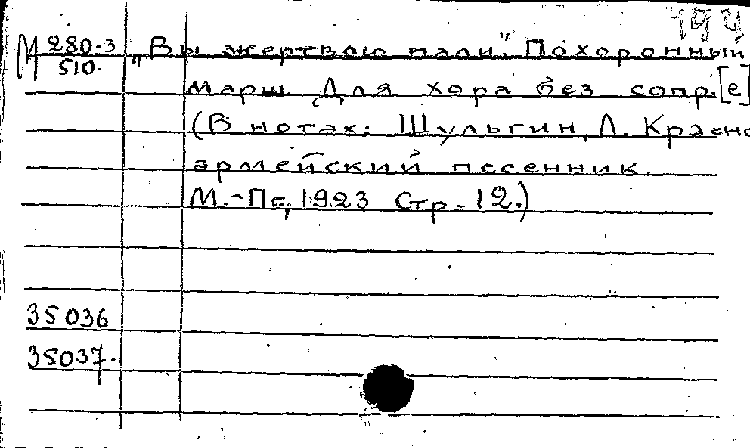 194
М 280-3 „Вы жертвою пали". Похоронный
510. марш Для хора без сопр.[е]
(В нотах: Шульгин, Л. Красно
армейский песенник.
М.-Пг, 1923 Стр. 12.)
35036
35037.